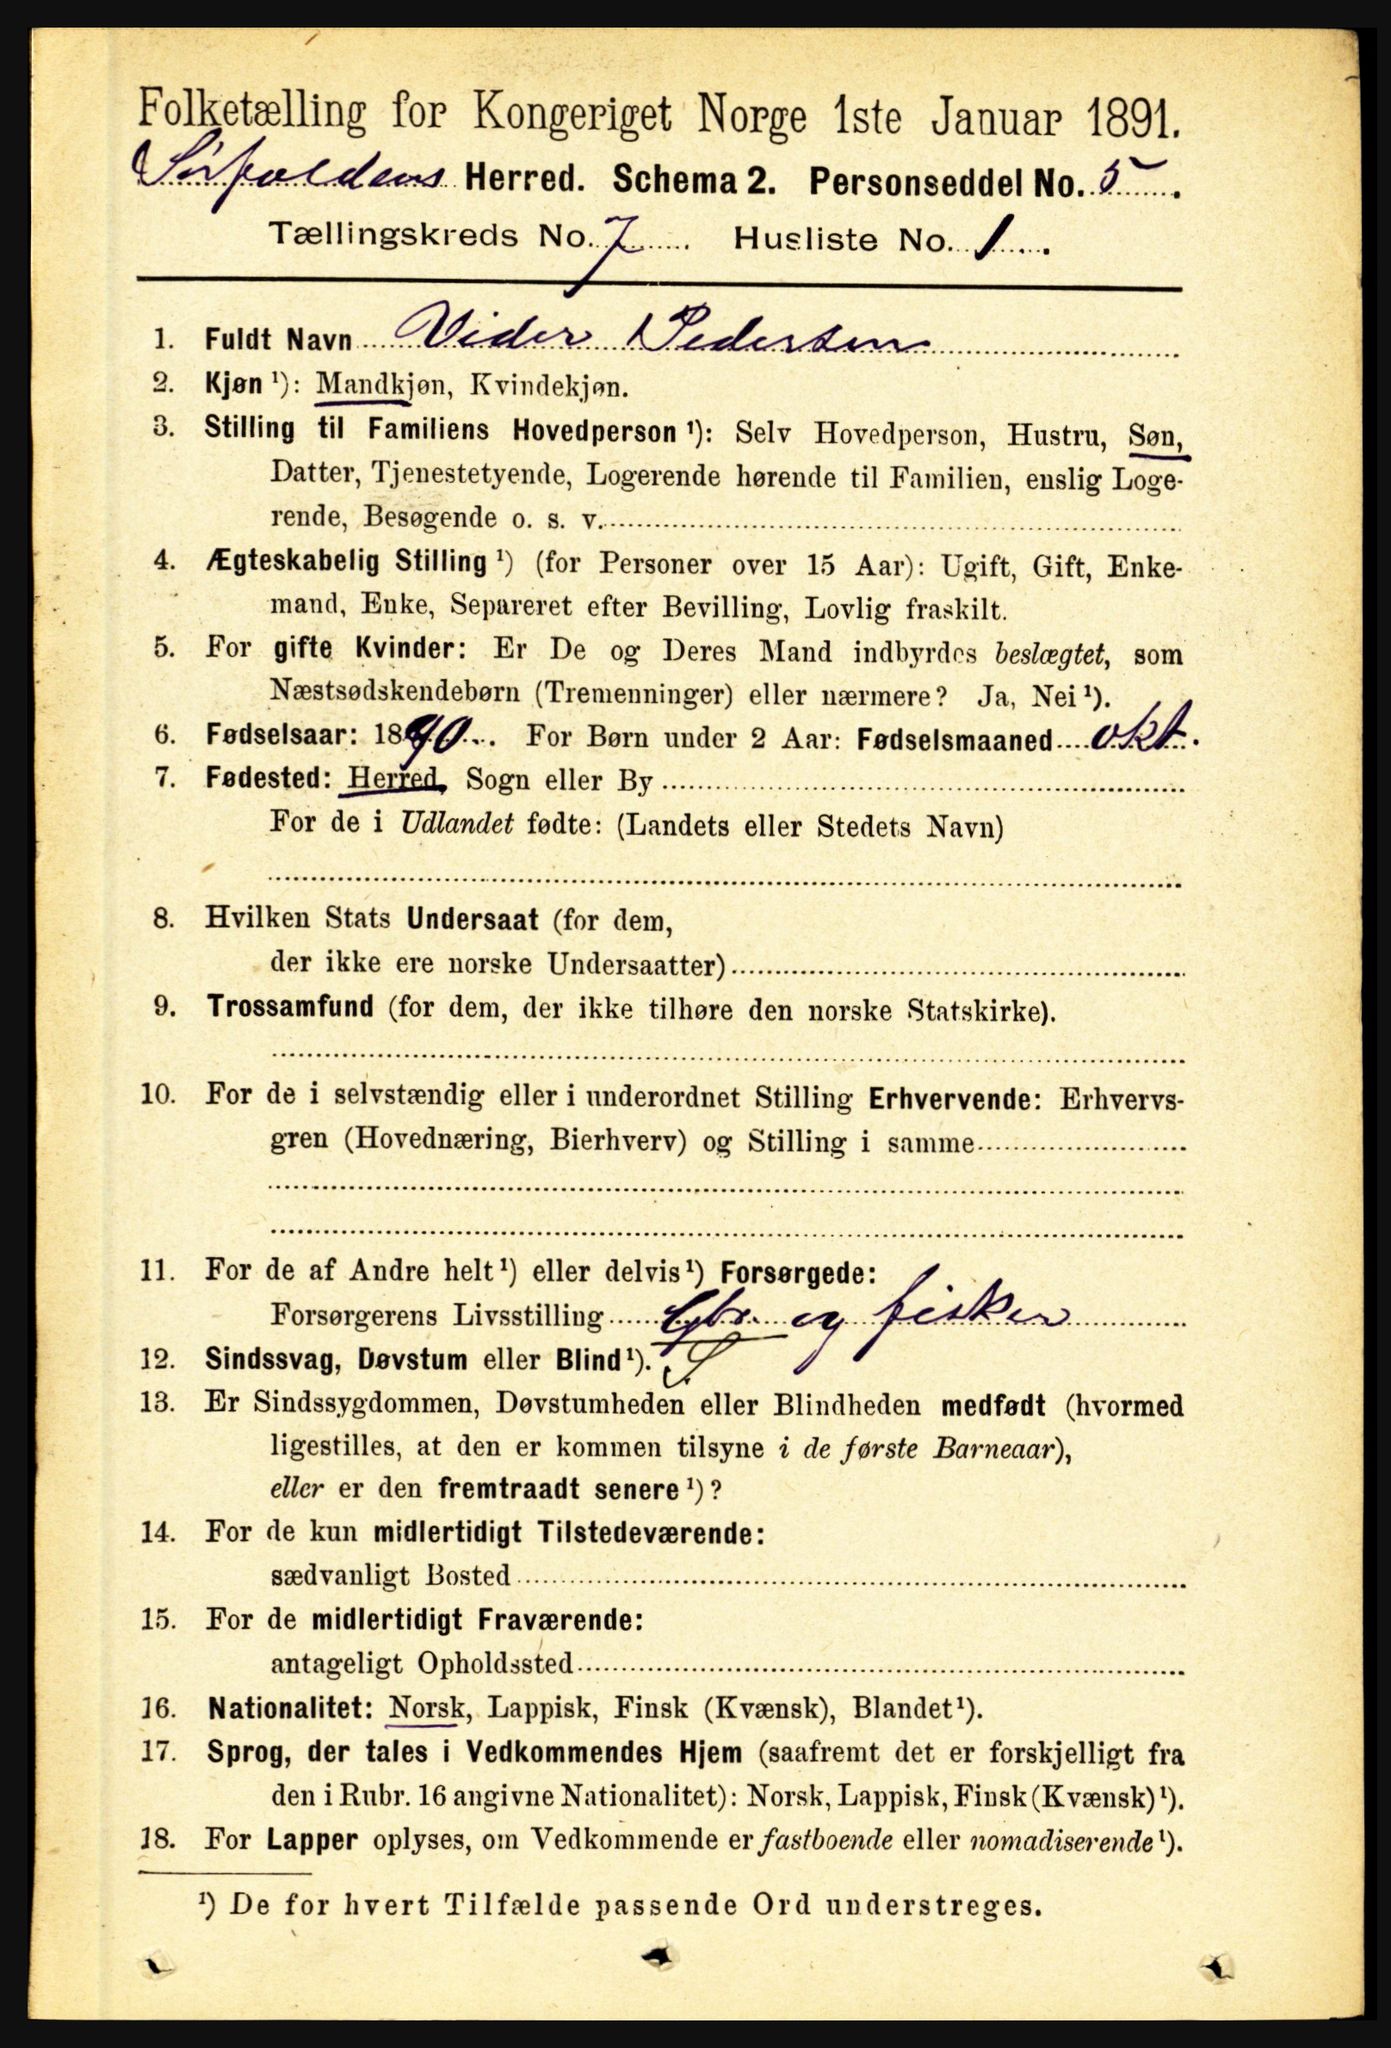 Folketælling for Kongeriget Norge 1ste Januar 1891.
Sørfoldens Herred. Schema 2. Personseddel No. 5.
Tællingskreds No. 7 Husliste No. 1.
1. Fuldt Navn Vider Pedersen
2. Kjøn ¹): Mandkjøn, Kvindekjøn.
3. Stilling til Familiens Hovedperson ¹): Selv Hovedperson, Hustru, Søn,
Datter, Tjenestetyende, Logerende hørende til Familien, enslig Loge-
rende, Besøgende o. s. v.
4. Ægteskabelig Stilling ¹) (for Personer over 15 Aar): Ugift, Gift, Enke-
mand, Enke, Separeret efter Bevilling, Lovlig fraskilt.
5. For gifte Kvinder: Er De og Deres Mand indbyrdes beslægtet, som
Næstsødskendebørn (Tremenninger) eller nærmere? Ja, Nei ¹).
6. Fødselsaar: 1890. For Børn under 2 Aar: Fødselsmaaned okt.
7. Fødested: Herred, Sogn eller By
For de i Udlandet fødte: (Landets eller Stedets Navn)
8. Hvilken Stats Undersaat (for dem,
der ikke ere norske Undersaatter)
9. Trossamfund (for dem, der ikke tilhøre den norske Statskirke).
10. For de i selvstændig eller i underordnet Stilling Erhvervende: Erhvervs-
gren (Hovednæring, Bierhverv) og Stilling i samme
11. For de af Andre helt ¹) eller delvis ¹) Forsørgede:
Forsørgerens Livsstilling Gbr. og fisker
12. Sindssvag, Døvstum eller Blind ¹). S
13. Er Sindssygdommen, Døvstumheden eller Blindheden medfødt (hvormed
ligestilles, at den er kommen tilsyne i de første Barneaar),
eller er den fremtraadt senere ¹)?
14. For de kun midlertidigt Tilstedeværende:
sædvanligt Bosted
15. For de midlertidigt Fraværende:
antageligt Opholdssted
16. Nationalitet: Norsk, Lappisk, Finsk (Kvænsk), Blandet ¹).
17. Sprog, der tales i Vedkommendes Hjem (saafremt det er forskjelligt fra
den i Rubr. 16 angivne Nationalitet): Norsk, Lappisk, Finsk (Kvænsk) ¹).
18. For Lapper oplyses, om Vedkommende er fastboende eller nomadiserende ¹).
¹) De for hvert Tilfælde passende Ord understreges.